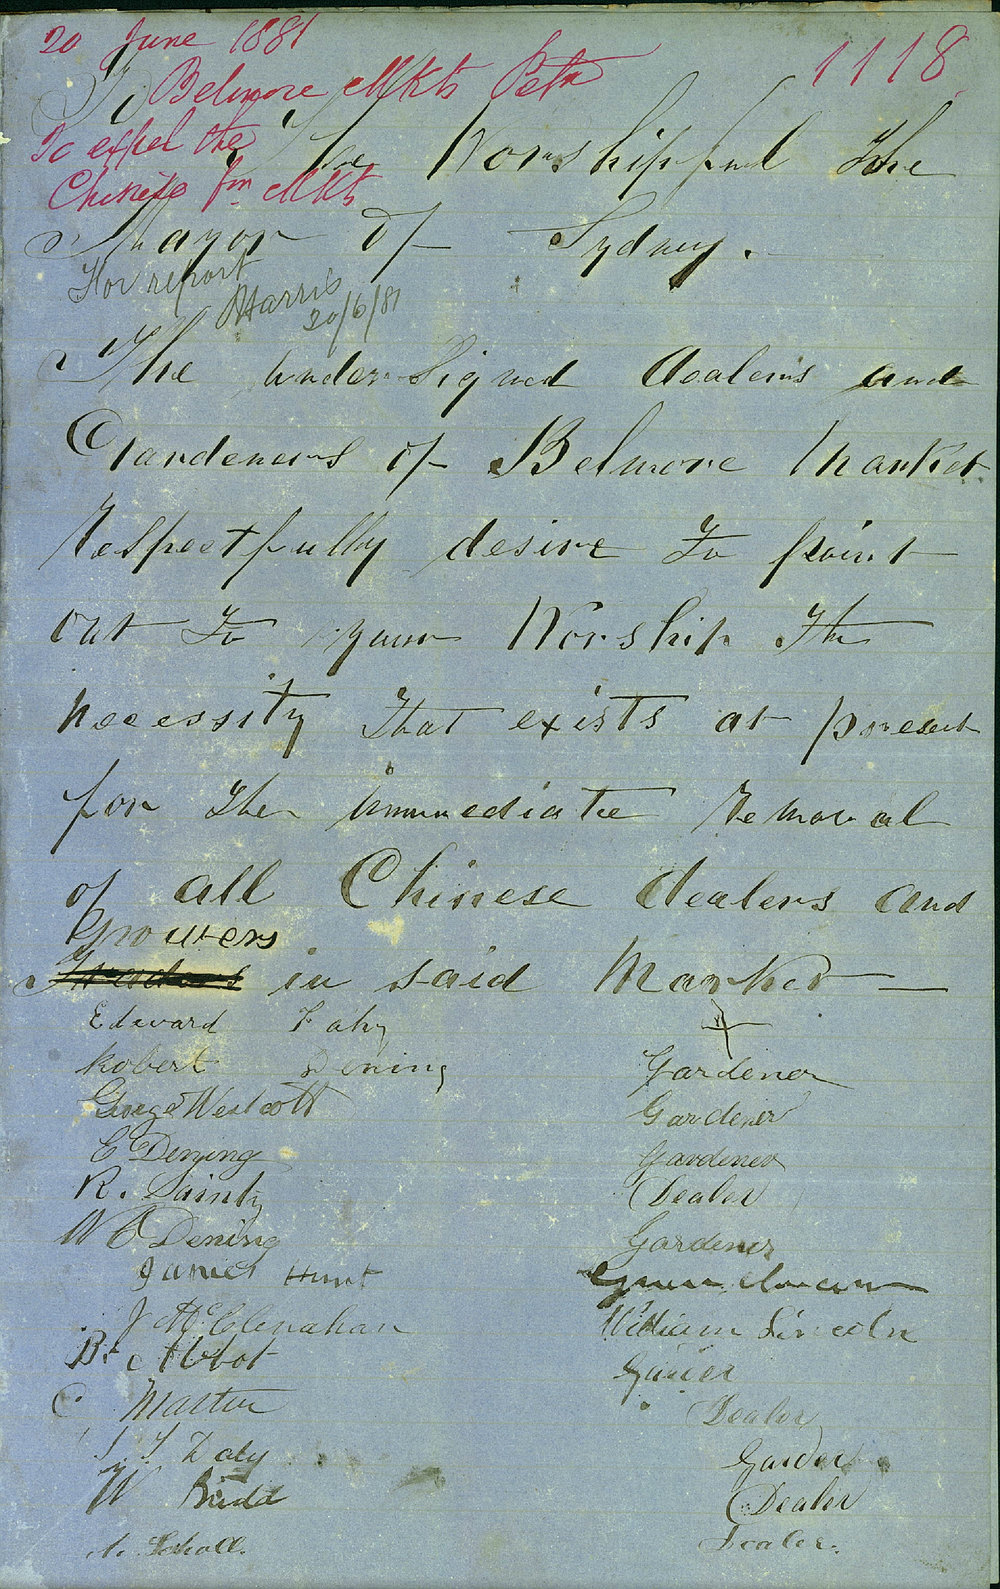 20 June 1881
Belmore Mkts Petn 1118
To expel the
Chinese fm Mkts
To
The Worshipful the
Mayor of Sydney.
For report
Harris
20/6/81
The undersigned dealers and
Gardeners of Belmore Market
respectfully desire to point
out to your Worship the
necessity that exists at present
for the immediate removal
of all Chinese dealers and
Growers
Traders in said Market —
Edward Fahy
Robert Dening Gardener
George Westcott Gardener
E Dening Gardener
R. Sainty Dealer
W C Dening Gardener
James Hunt
J McClenahan William Lincoln
Bt Abbot
C Martin Dealer
Daly
W Budd Dealer
Scholl. Dealer.